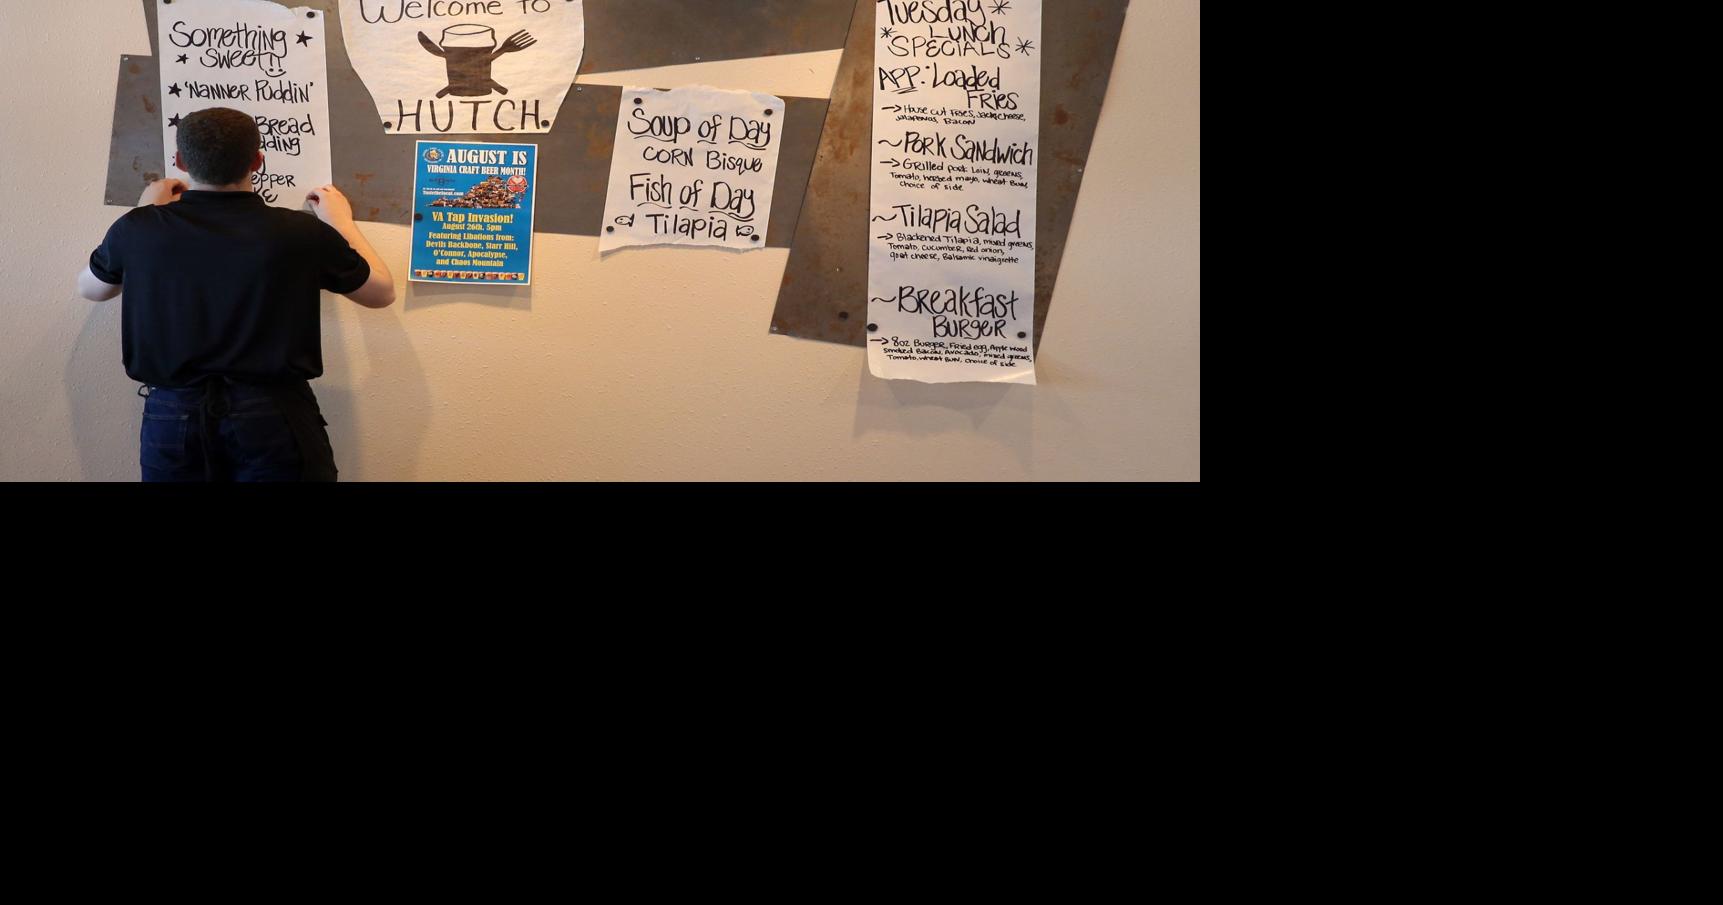 Something
Sweet!!
'Nanner Puddin'
Bread
Welcome to
HUTCH
AUGUST IS
VIRGINIA CRAFT BEER MONTH!
VA Tap Invasion!
August 26th, 5pm
Featuring Libations from:
Devils Backbone, Starr Hill,
O'Connor, Apocalypse,
and Chaos Mountain
Soup of Day
CORN Bisque
Fish of Day
Tilapia
Tuesday
LUNCH
SPECIALS
APP: Loaded
Fries
House cut Fries, Jack cheese,
Jalapenos, Bacon
Pork Sandwich
Grilled pork Loin, greens,
Tomato, herbed mayo, wheat Bun,
choice of side
Tilapia Salad
Blackened Tilapia, mixed greens,
Tomato, cucumber, red onion,
goat cheese, Balsamic vinaigrette
Breakfast
Burger
8oz Burger, Fried egg, Apple wood
smoked Bacon, Avocado, mixed greens,
Tomato, wheat Bun, choice of side